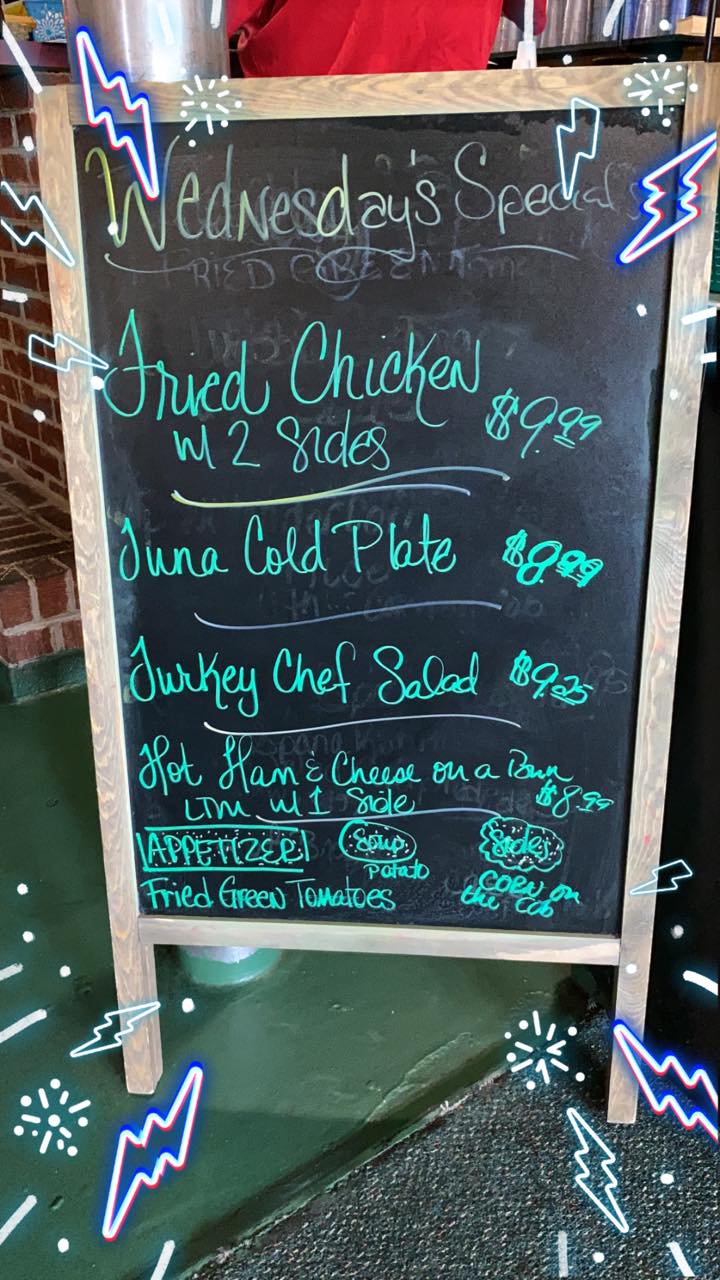 Wednesday's Specials
Fried Chicken
w/ 2 Sides
$9.99
Tuna Cold Plate $8.99
Turkey Chef Salad $9.25
Hot Ham & Cheese on a Bun
LTM w/ 1 Side $8.99
APPETIZER
Fried Green Tomatoes
Soup
Potato
Sides
CORN on
the Cob